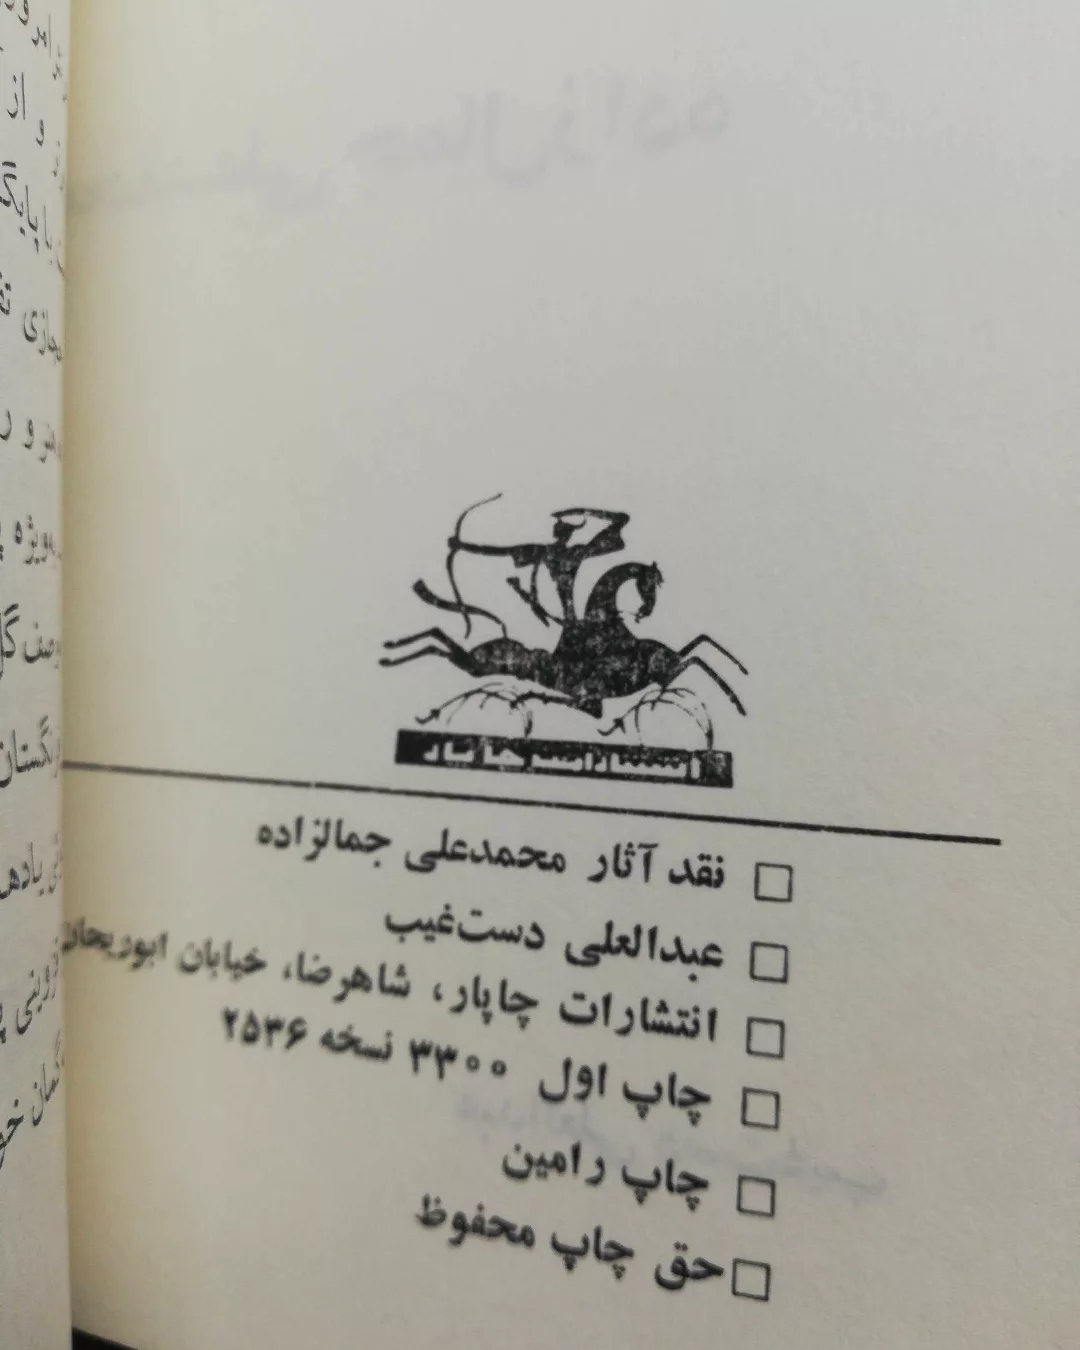 انتشارات چاپار
نقد آثار محمدعلی جمالزاده
عبدالعلی دست‌غیب
انتشارات چاپار، شاهرضا، خیابان ابوریحان
چاپ اول ۳۳۰۰ نسخه ۲۵۳۶
چاپ رامین
حق چاپ محفوظ